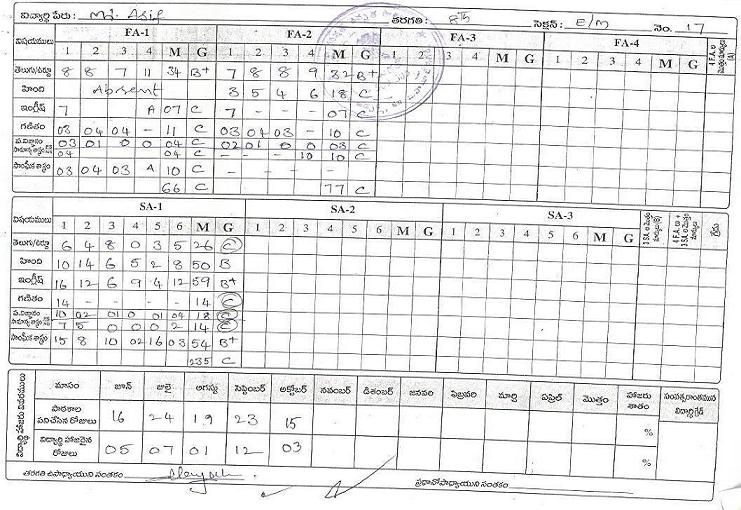 విద్యార్థి పేరు : Md. Asif తరగతి : 8th సెక్షన్ : E/M నెం. 17
విషయములు FA-1 FA-2 FA-3 FA-4
1 2 3 4 M G 1 2 3 4 M G 1 2 3 4 M G 1 2 3 4 M G
తెలుగు/ఉర్దూ 8 8 7 11 34 B+ 7 8 8 9 32 B+
హింది Absent 3 5 4 6 18 C
ఇంగ్లీష్ 7 A 07 C 7 - - - 07 C
గణితం 03 04 04 - 11 C 03 04 03 - 10 C
ప.విజ్ఞానం 03 01 0 0 04 C 02 01 0 0 03 C
సామాన్య శాస్త్రం 04 04 C - - - 10 10 C
సాంఘీక శాస్త్రం 03 04 03 A 10 C - - - -
66 C 77 C
విషయములు SA-1 SA-2 SA-3
1 2 3 4 5 6 M G 1 2 3 4 5 6 M G 1 2 3 4 5 6 M G
తెలుగు/ఉర్దూ 6 4 8 0 3 5 26 C
హింది 10 14 6 5 2 8 50 B
ఇంగ్లీష్ 16 12 6 9 4 12 59 B+
గణితం 14 - - - - 14 C
ప.విజ్ఞానం 10 02 01 0 01 04 18 C
సామాన్య శాస్త్రం 7 5 0 0 0 2 14 C
సాంఘీక శాస్త్రం 15 8 10 02 16 03 54 B+
235 C
మాసం జూన్ జులై ఆగస్టు సెప్టెంబర్ అక్టోబర్ నవంబర్ డిశంబర్ జనవరి ఫిబ్రవరి మార్చి ఏప్రిల్ మొత్తం హాజరు శాతం
పాఠశాల పనిచేసిన రోజులు 16 24 19 23 15 %
విద్యార్థి హాజరైన రోజులు 05 07 01 12 03 %
తరగతి ఉపాధ్యాయుని సంతకం ప్రధానోపాధ్యాయుని సంతకం